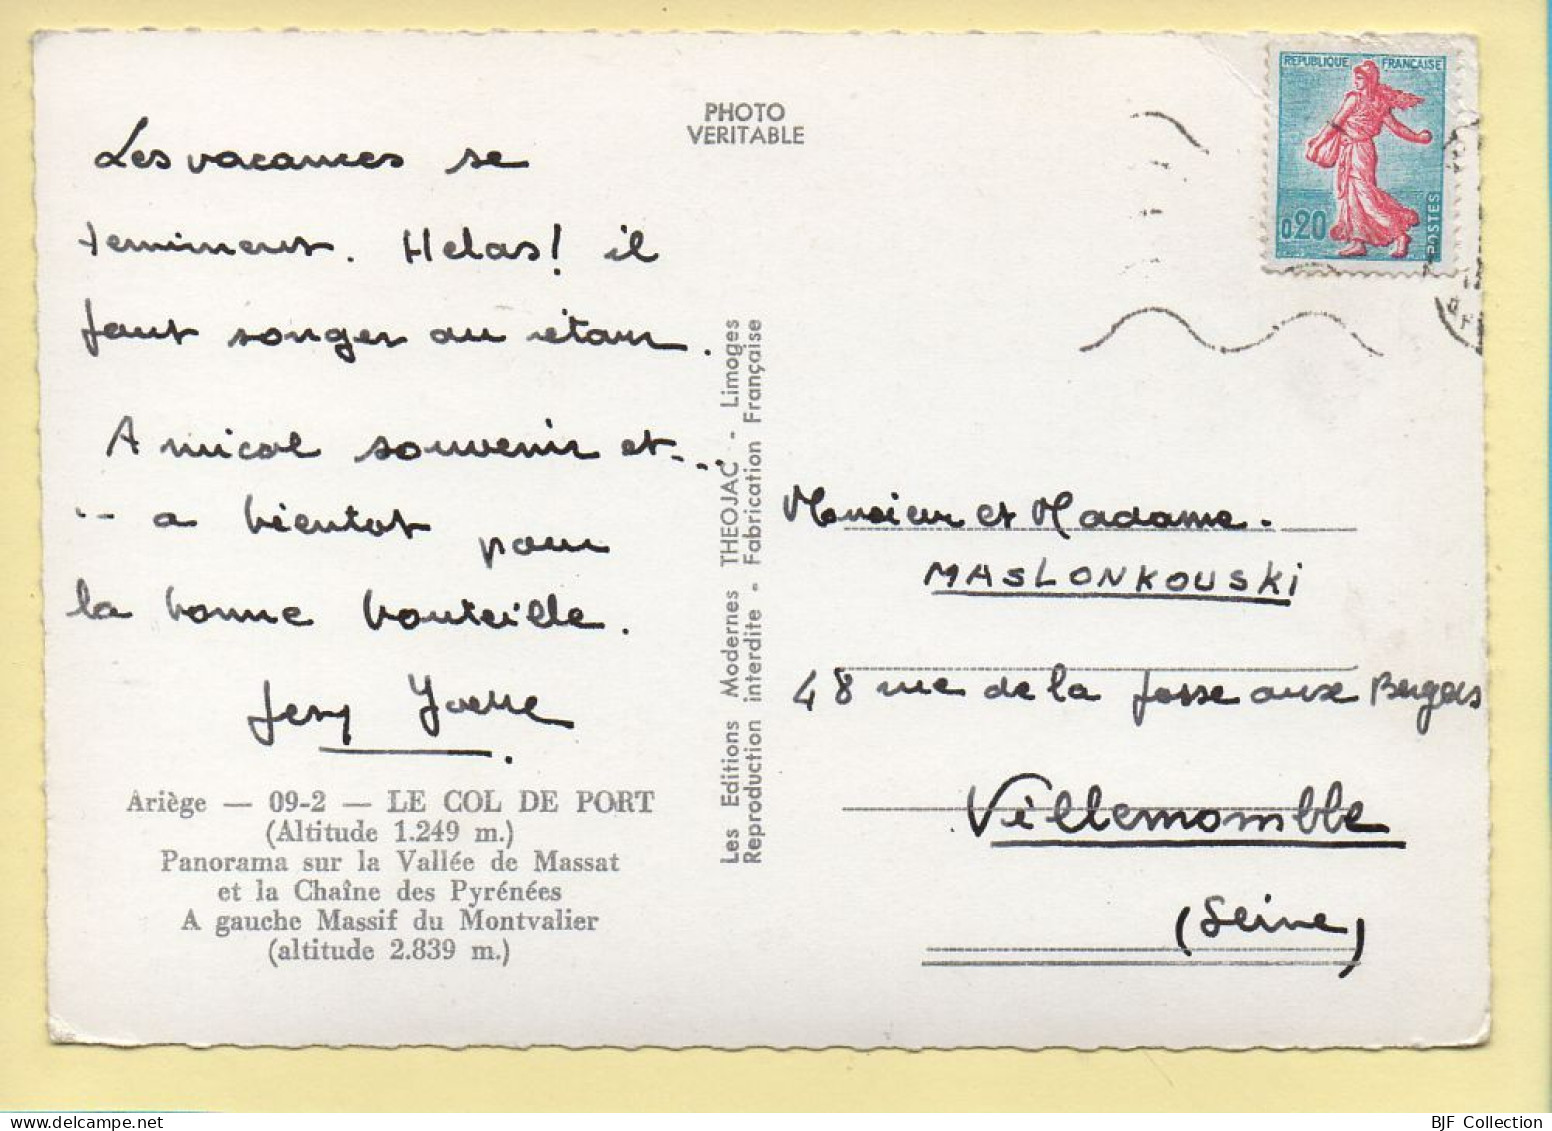 PHOTO
VERITABLE
REPUBLIQUE FRANÇAISE
0,20
POSTES
Les vacances se
terminent. Helas! il
faut songer au retour.
Amical souvenir et...
.. a bientot pour
la bonne bouteille.
Yvette
Ariège — 09-2 — LE COL DE PORT
(Altitude 1.249 m.)
Panorama sur la Vallée de Massat
et la Chaîne des Pyrénées
A gauche Massif du Montvalier
(altitude 2.839 m.)
Les Editions Modernes THEOJAC - Limoges
Reproduction interdite - Fabrication Française
Monsieur et Madame.
MASLONKOUSKI
48 rue de la fosse aux Bergers
Villemomble
(Seine)
BJF Collection